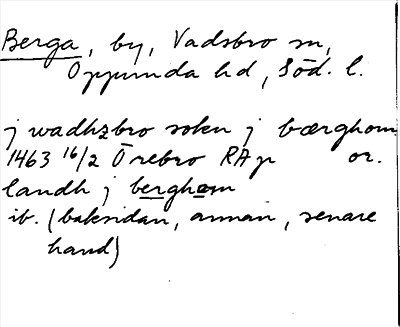 Berga, by, Vadsbro sn,
Oppunda hd, Söd. l.
j wadhzbro soken j bærghom
1463 16/2 Örebro RAp or.
landh j berghom
ib. (baksidan, annan, senare
hand)